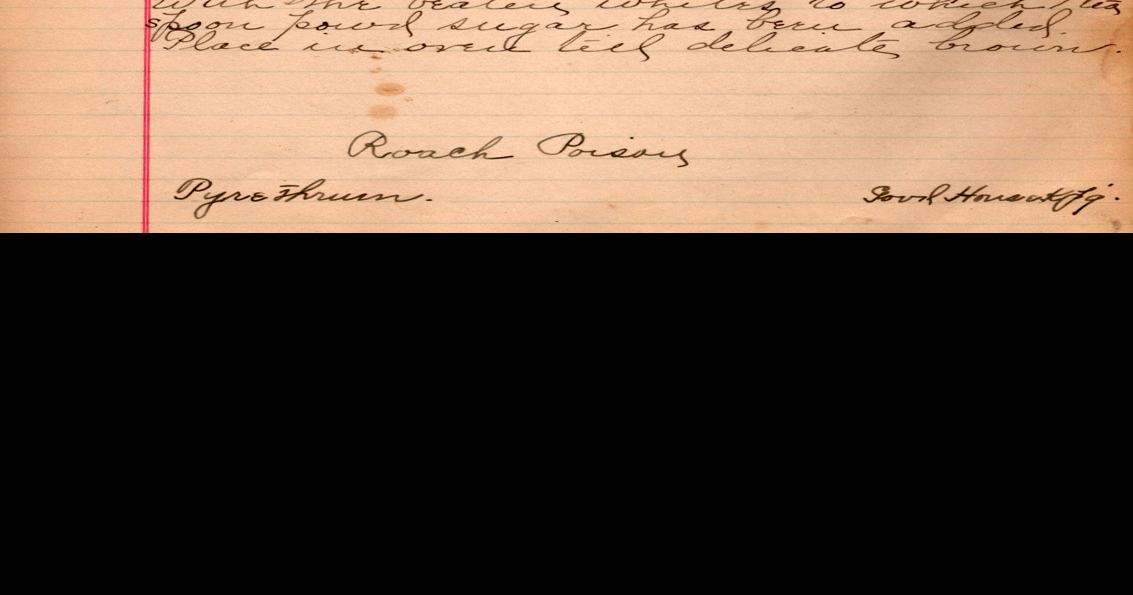 with the beaten whites to which 1 tea
spoon powd sugar has been added.
Place in oven till delicate brown.
Roach Poison
Pyrethrum. Good Housekp'g.